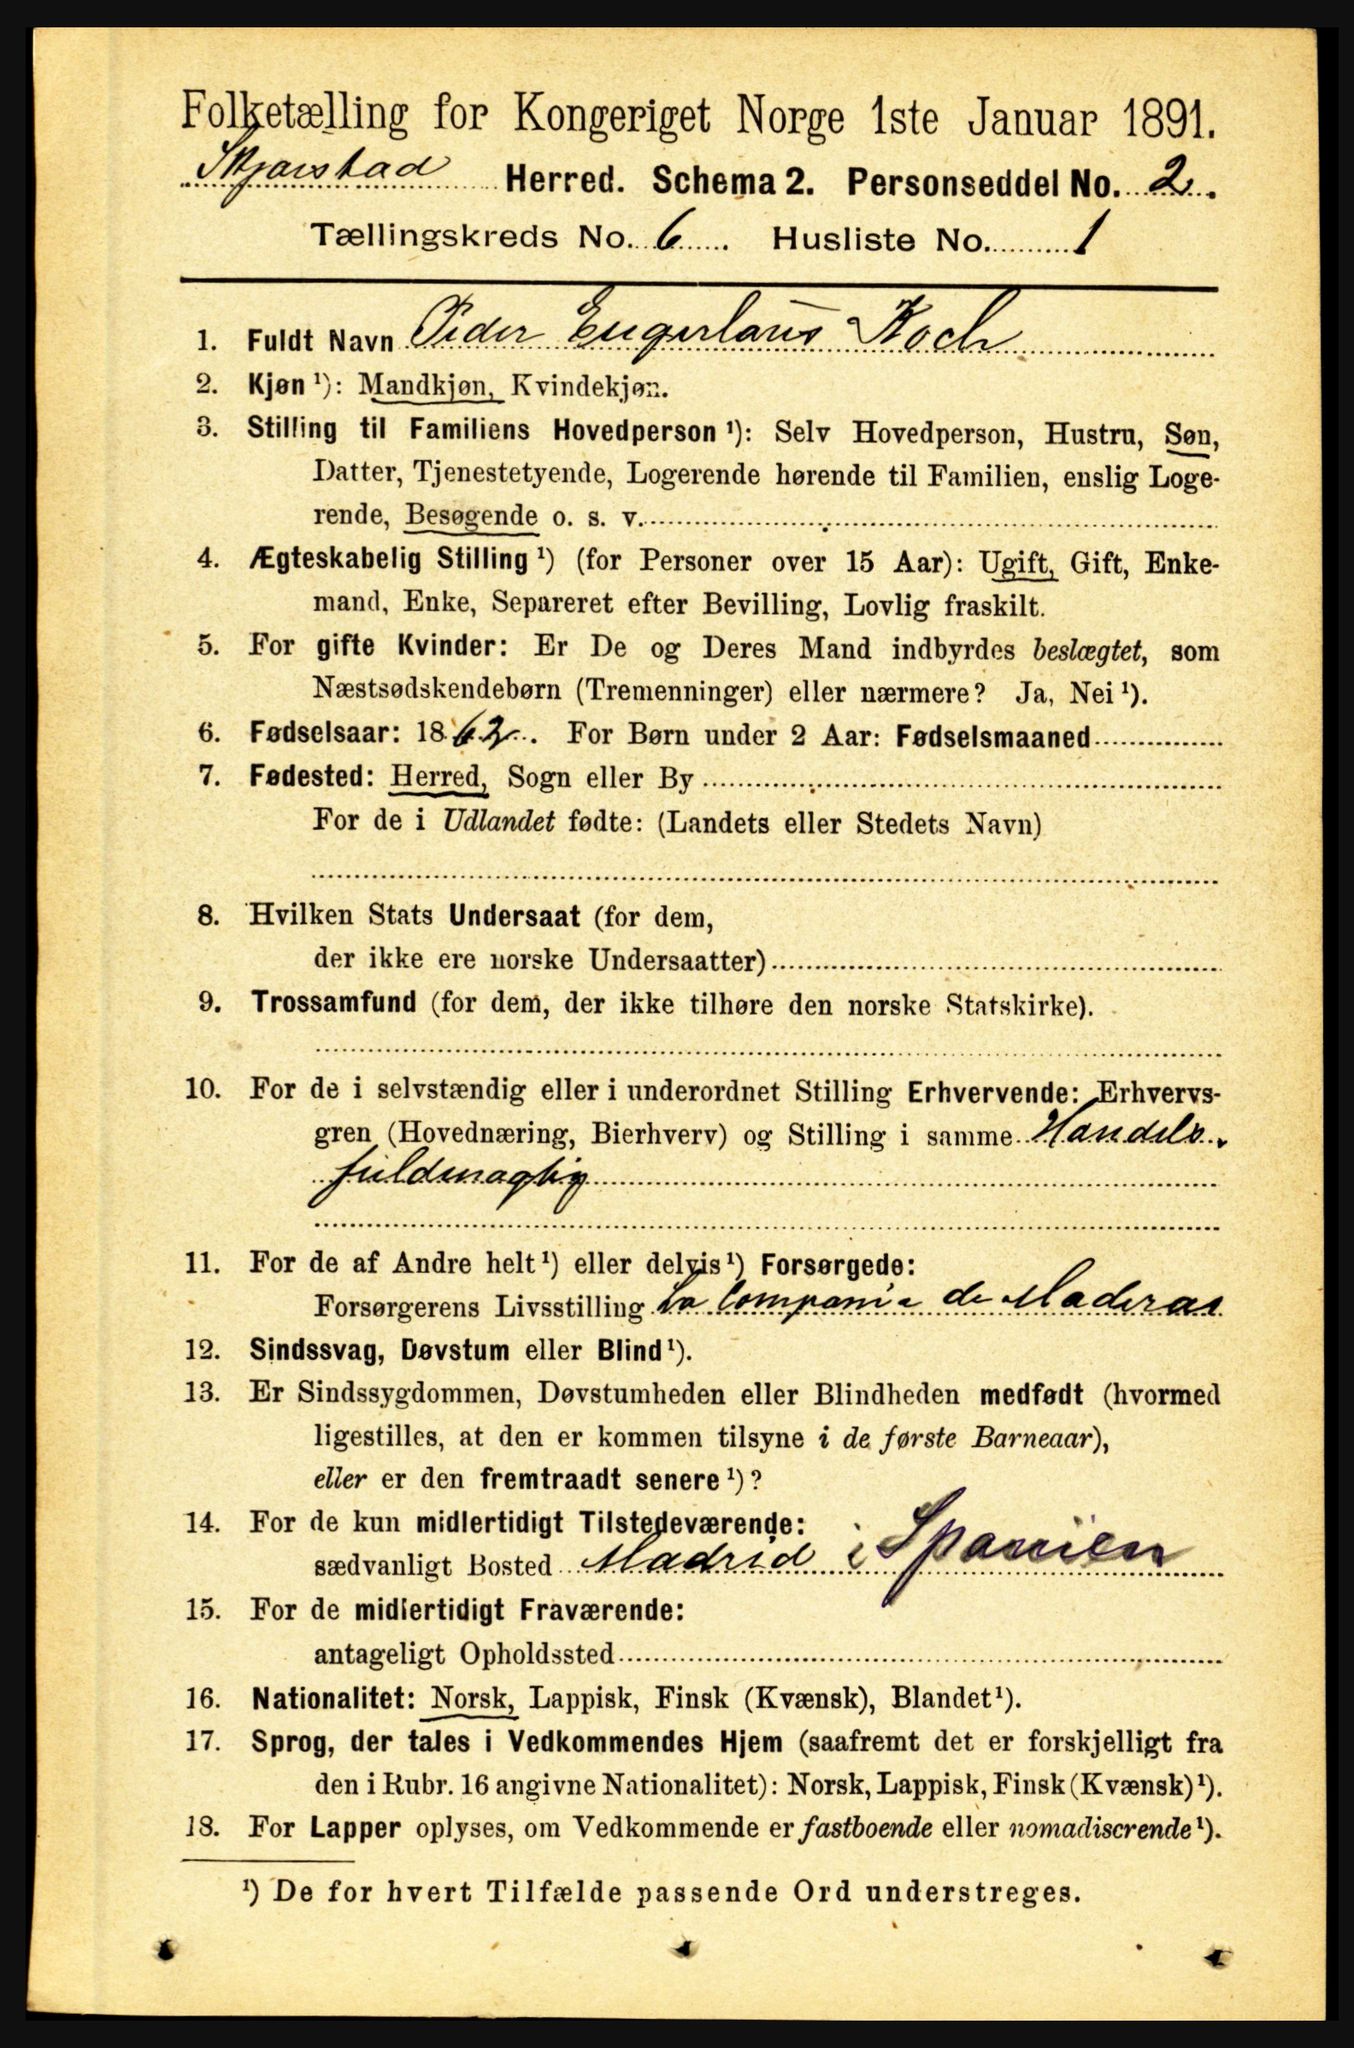 Folketælling for Kongeriget Norge 1ste Januar 1891.
Skjærstad Herred. Schema 2. Personseddel No. 2.
Tællingskreds No. 6. Husliste No. 1
1. Fuldt Navn Peder Engerlaus Koch
2. Kjøn ¹): Mandkjøn, Kvindekjøn.
3. Stilling til Familiens Hovedperson ¹): Selv Hovedperson, Hustru, Søn,
Datter, Tjenestetyende, Logerende hørende til Familien, enslig Loge-
rende, Besøgende o. s. v.
4. Ægteskabelig Stilling ¹) (for Personer over 15 Aar): Ugift, Gift, Enke-
mand, Enke, Separeret efter Bevilling, Lovlig fraskilt.
5. For gifte Kvinder: Er De og Deres Mand indbyrdes beslægtet, som
Næstsødskendebørn (Tremenninger) eller nærmere? Ja, Nei ¹).
6. Fødselsaar: 1862. For Børn under 2 Aar: Fødselsmaaned
7. Fødested: Herred, Sogn eller By
For de i Udlandet fødte: (Landets eller Stedets Navn)
8. Hvilken Stats Undersaat (for dem,
der ikke ere norske Undersaatter)
9. Trossamfund (for dem, der ikke tilhøre den norske Statskirke).
10. For de i selvstændig eller i underordnet Stilling Erhvervende: Erhvervs-
gren (Hovednæring, Bierhverv) og Stilling i samme Handels-
fuldmægtig
11. For de af Andre helt ¹) eller delvis ¹) Forsørgede:
Forsørgerens Livsstilling La Compania de Maderas
12. Sindssvag, Døvstum eller Blind ¹).
13. Er Sindssygdommen, Døvstumheden eller Blindheden medfødt (hvormed
ligestilles, at den er kommen tilsyne i de første Barneaar),
eller er den fremtraadt senere ¹)?
14. For de kun midlertidigt Tilstedeværende:
sædvanligt Bosted Madrid i Spanien
15. For de midlertidigt Fraværende:
antageligt Opholdssted
16. Nationalitet: Norsk, Lappisk, Finsk (Kvænsk), Blandet ¹).
17. Sprog, der tales i Vedkommendes Hjem (saafremt det er forskjelligt fra
den i Rubr. 16 angivne Nationalitet): Norsk, Lappisk, Finsk (Kvænsk) ¹).
18. For Lapper oplyses, om Vedkommende er fastboende eller nomadiscrende ¹).
¹) De for hvert Tilfælde passende Ord understreges.